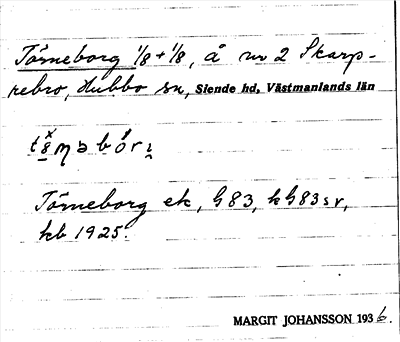 Törneborg 1/8 + 1/8, å nr 2 Skarp-
rebro, Hubbo sn, Siende hd, Västmanlands län
Törneborg ek, G83, kG83sv,
hb 1925.
MARGIT JOHANSSON 1936.